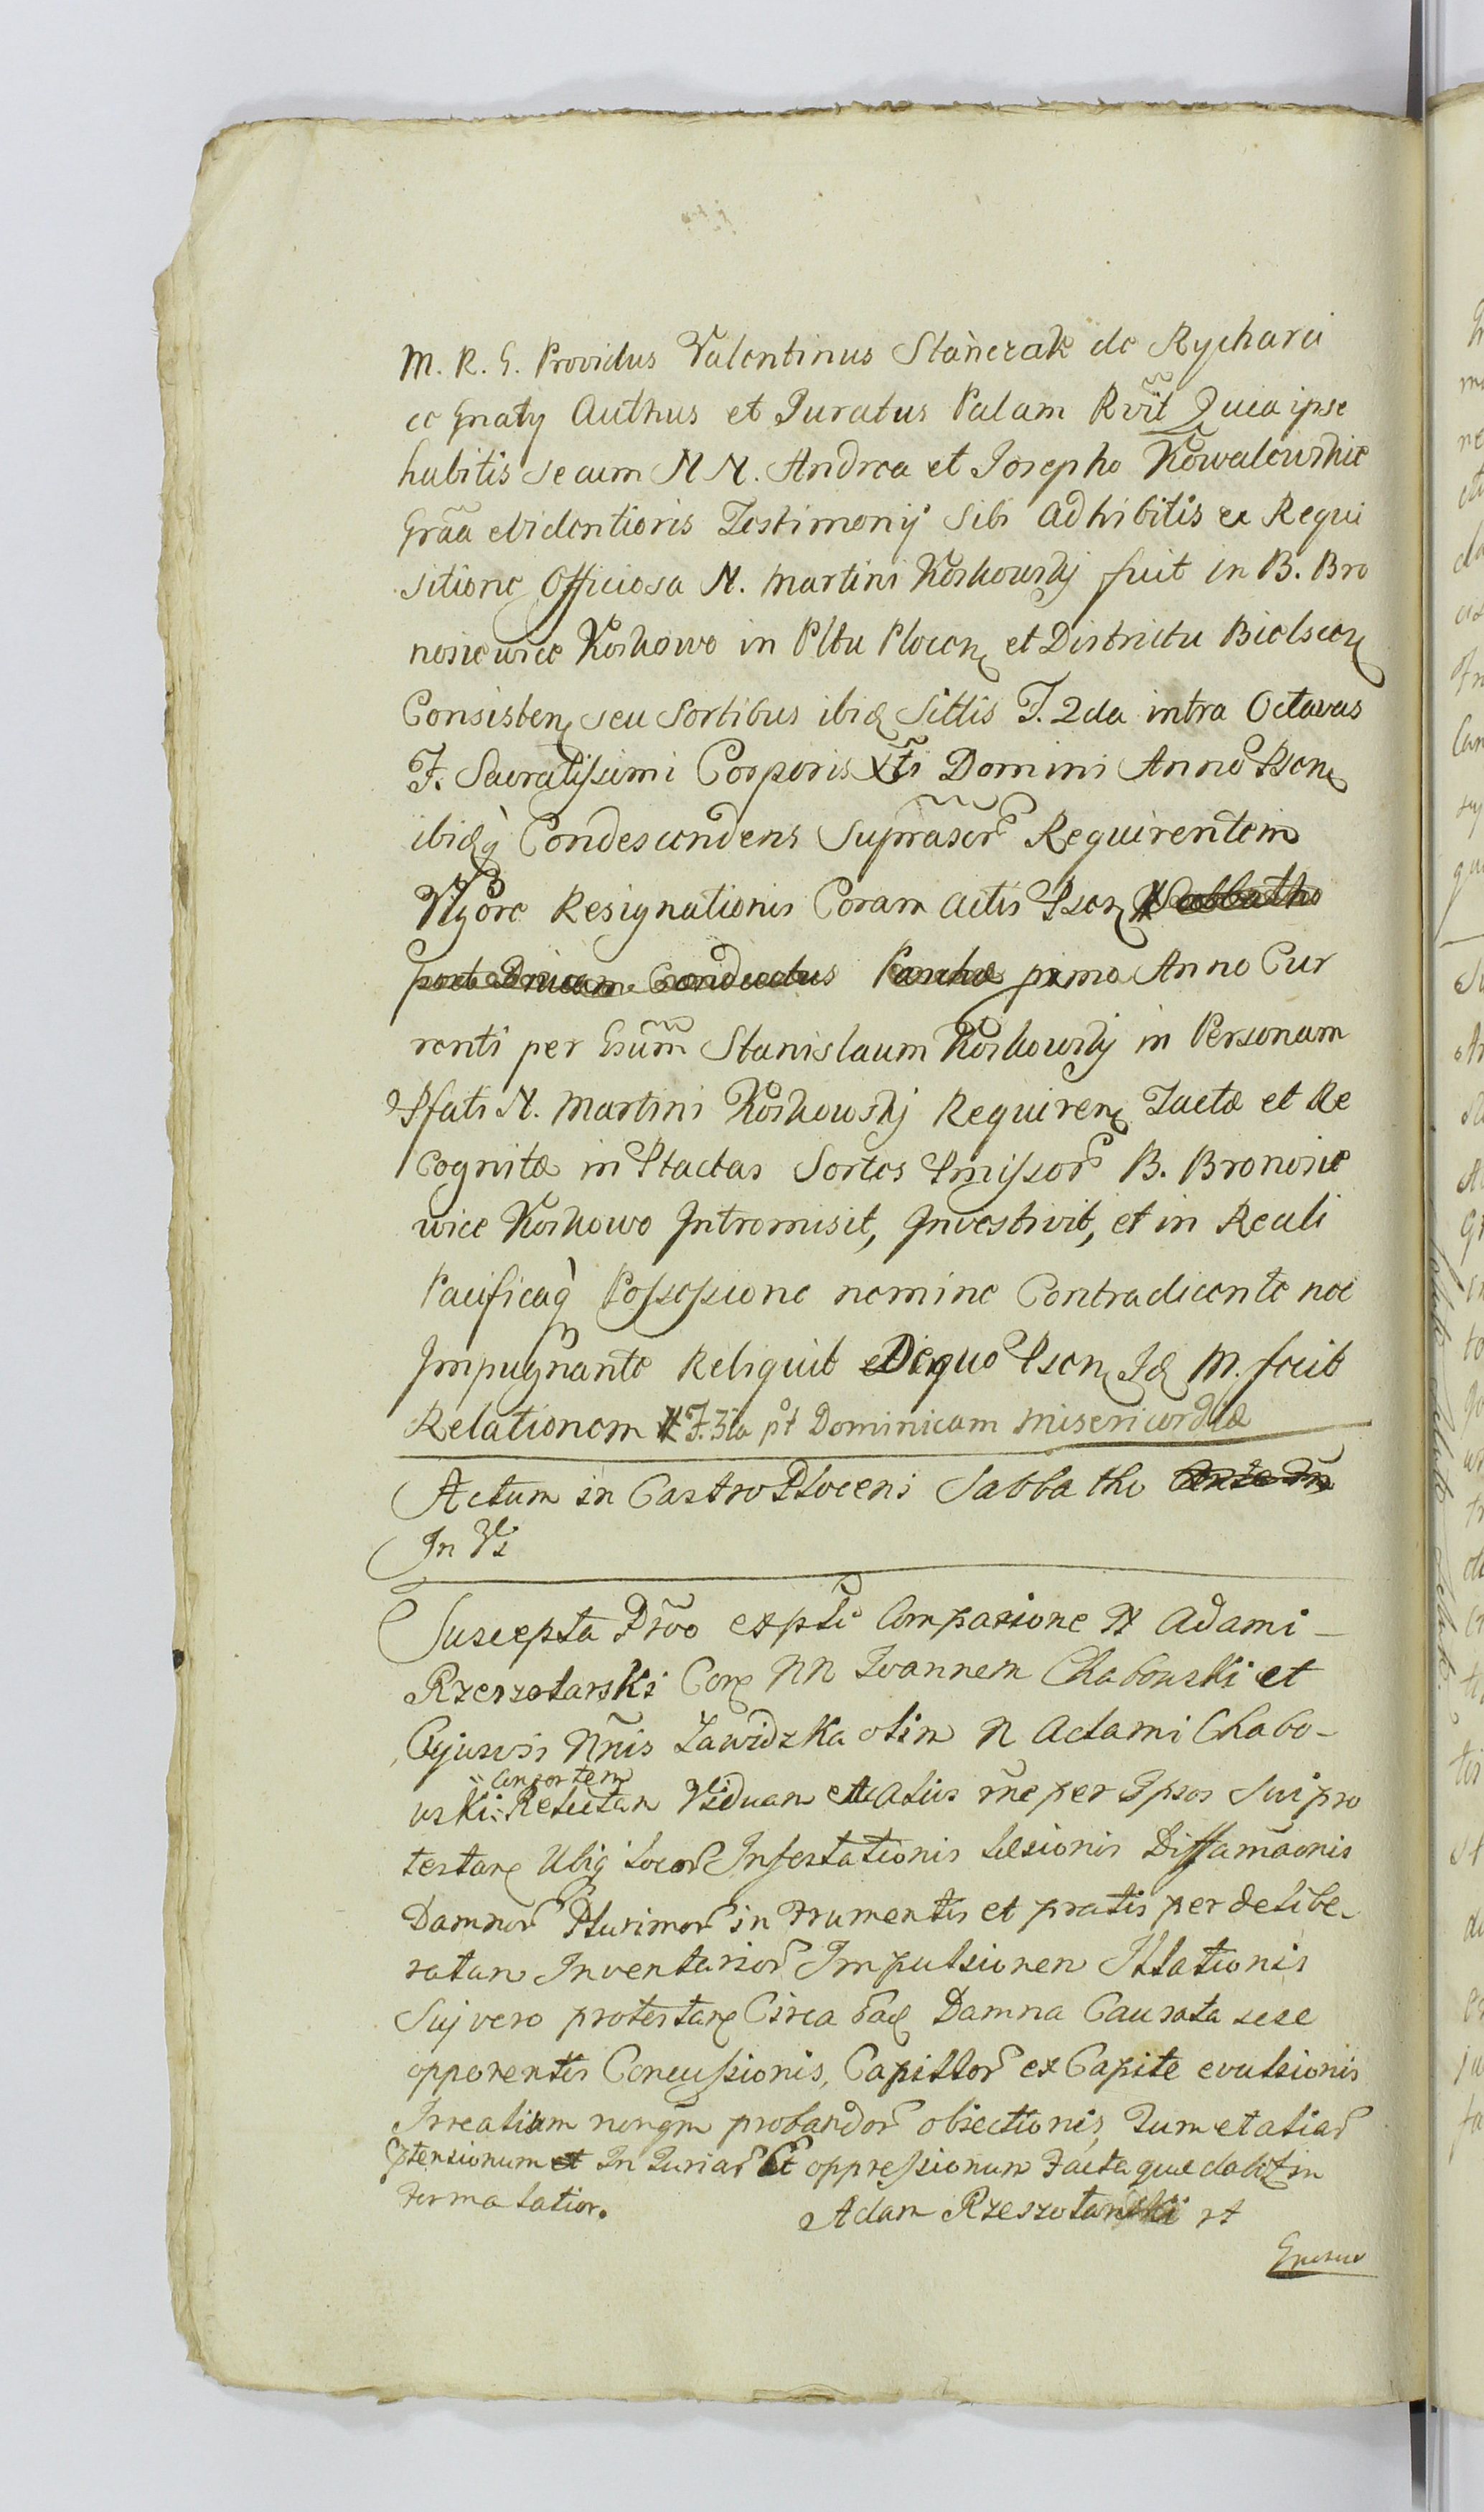 M. R. G. Providus Valentinus Stańczak de Rycharci
ce Gnaty Authus et Juratus Palam Rvĩt Quia ipse
habitis secum N N. Andrea et Josepho Kowalewskie
Grãa evidentioris Testimonij sibi adhibitis ex Requi
sitione Officiosa N. Martini Koskowskj fuit in B. Bro
nosiewice Koskowo in Pltu Plocen et Districtu Bielscen
Consisten seu Sortibus ibid Sittis F. 2da intra Octavas
F. Sacratissimi Corporis Xti Domini Anno Psen
ibidq Condescendens Suprascr Requirentem
Vigore Resignationis Coram actis Psen Sabbatho
post Dnicam Conductus Paschæ pxmo Anno Cur
renti per Gsum Stanislaum Koskowskj in Personam
Pfati N. Martini Koskowskj Requiren Factæ et Re
cognitæ in Ptactas Sortes Pmissor B. Bronosie
wice Koskowo Intromisit, Investivit, et in Reali
Pacificaq Possessione nemine Contradicente nec
Impugnante Reliquit et De quo Psen Id M. fecit
Relationem F. 3tia pt Dominicam Misericordiæ
Actum in Castro Plocens Sabbatho Ante Dn
In Vi
Suscepta Prõo expsse Comparione N Adami
Rzeszotarski Con NN Joannem Chabowski et
Cujusvis Nnis Zawidzka olim N Adami Chabo-
consortem
wski Relictan Viduam Alius rne per Ipsos Sui pro
testan Ubiq locor Infestationis læsionis Diffamãonis
Damnor Plurimor in Frumentis et pratis per delibe
ratan Inventarior Impulsionen Illationis
Suj vero protestan Circa ead Damna Causata sese
opponentis Concussionis, Capillor ex Capite evulsionis
Irrealium nonqm probandor obiectionis, Tum et aliar
Ptensionum et Injuriar Et oppressionum Facta quæ dabit in
Forma latior.
Adam Rzeszotarski